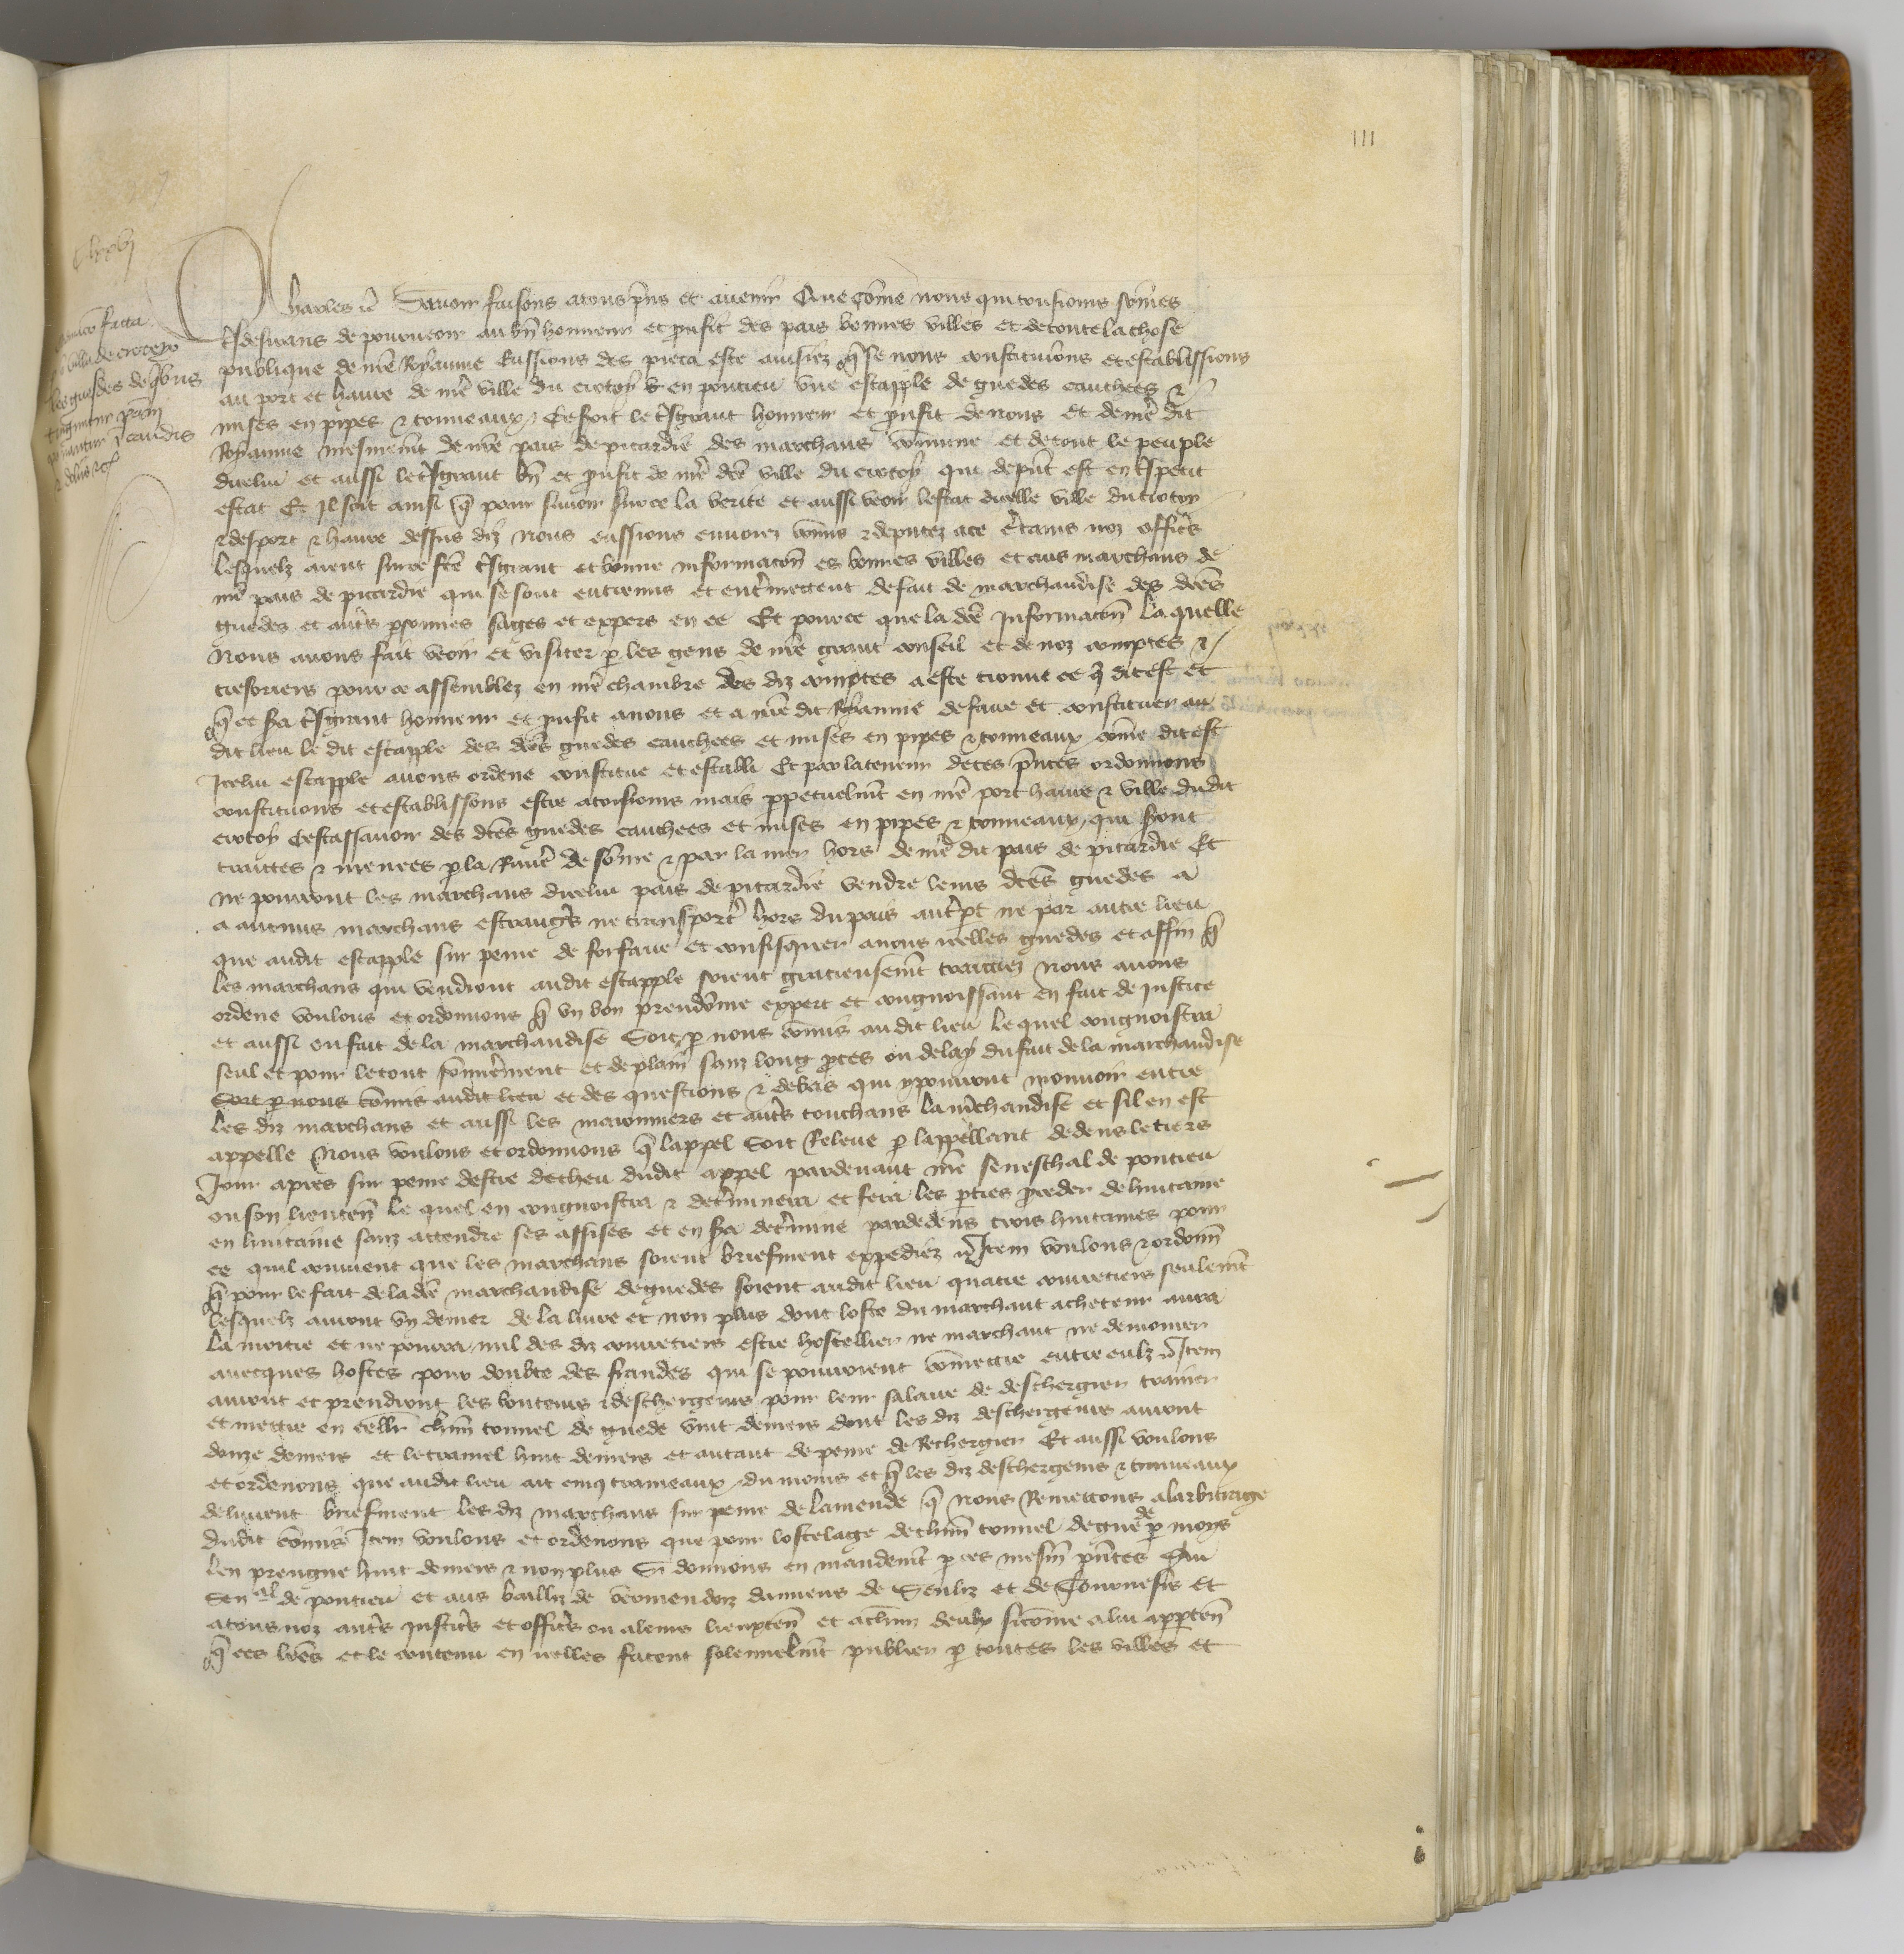 III
Charles etc Savoir faisons a tous p̃ns et avenir Que cõme nous qui tousiours sõmes
desirans de pourveoir au bñ honneur et proufit des pais bonnes villes et de toute la chose
publique de nr̃e Royaume Eussions des pieca este avisiez q̃ se nous constituions et establissions
au port et havre de nr̃e ville du crotoy en pontieu une estapple de guedes cauchees &
mises en pipes & tonneaux Ce soit le tresgrant honneur et proufit de nous et de nr̃e dit
Royaume mesmemt̃ de nr̃e pais de picardie des marchans cõmune et de tout le peuple
dicelui et aussi le tresgrant bñ et proufit de nr̃e dc̃e ville du crotoy qui de p̃nt est en trespetit
estat Et Il soit ainsi q̃ pour savoir sur ce la verite et aussi veoir lestat dicelle ville du crotoy
& des port & havre dessus diz nous eussions envoiez cõmis & deputez a ce c̃tains noz offic̃rs
lesquelz aient sur ce fc̃e tresgrant et bonne informacoñ es bonnes villes et aus marchans de
nr̃e pais de picardie qui se sont entremis et entr̃mectent de fait de marchandise des dc̃es
guedes et autr̃s p̃sonnes sages et expers en ce Et pour ce que la dc̃e Informacoñ La quelle
Nous avons fait veoir et visiter p̃ les gens de nr̃e grant conseil et de noz comptes &
tresoriers pour ce assemblez en nr̃e chambre des diz comptes a este trouve ce q̃ dit est Et
q̃ ce sera tresgrant honneur et p̃ufit a nous et a nr̃e dit Royaume de faire et constituer au
dit lieu le dit estapple des dc̃es guedes cauchees et mises en pipes & tonneaux cõme dit est
Icelui estapple avons ordene constitue et establi Et par la teneur de ces p̃ntes ordonnons
constituons et establissons estre a tousiours mais p̃petuelmt̃ en nr̃e port havre & ville dudit
crotoy Cestassavoir des dc̃es guedes cauchees et mises en pipes & tonneaux qui seront
traictes & menees p̃ la Riviere de sõme & par la mer hors de nr̃e dit pais de picardie Et
ne pourront les marchans dicelui pais de picardie vendre leurs dc̃es guedes a
a aucuns marchans estrang̃rs ne transport̃r hors du pais autr̃ pt ne par autre lieu
que audit estapple sur peine de forfaire et confisquer a nous icelles guedes et affin q̃
les marchans qui vendront audit estapple soient gracieusemt̃ traictiez Nous avons
ordene voulons et ordonnons q̃ un bon preudõme expert et congnoissant en fait de Justice
et aussi en fait de la marchandise Soit p̃ nous cõmis audit lieu Le quel congnoistra
seul et pour le tout sõmier̃ment et de plain sanz long p̃ces ou delay du fait de la marchandise
Soit p̃ nous cõmis audit lieu et des questions & debas qui y pourront mouvoir entre
les diz marchans et aussi les maronniers et autr̃s touchans la mr̃chandise et sil en est
appelle Nous voulons et ordonnons q̃ lappel soit Releve p̃ lappellant dedens le tiers
Jour apres sur peine destre decheu dudit appel pardevant nr̃e seneschal de pontieu
ou son lieuteñ Le quel en congnoistra & detr̃minera et fera les p̃ties p̃ceder de huitaine
en huitaine sanz attendre ses assises et en sera detr̃mine pardedens trois huitaines pour
ce quil convient que les marchans soient briefment expediez Item voulons & ordonñ
q̃ pour le fait de la dc̃e marchandise de guedes soient audit lieu quatre couretiers seulemt̃
Lesquelz auront un denier de la livre et non plus dont loste du marchant acheteur aura
la moitie et ne pourra nul des diz couretiers estre hostellier ne marchant ne demourer
avecques hostes pour doubte des fraudes qui se pourroient cõmectre entre eulz Item
auront et prendront les bouteurs & deschergeurs pour leur salaire de deschergier trainer
et mectre en cellir̃ chũn tonnel de guede vint deniers dont les diz deschergeurs auront
douze deniers et le trainel huit deniers et autant de peine de Rechergier Et aussi voulons
et ordenons que audit lieu ait cinq traineaux du moins et q̃ les diz deschergeurs & traineaux
delivrent briefment les diz marchans sur peine de lamende q̃ Nous Remectons a larbitrage
dudit cõmis Item voulons et ordenons que pour lostelage de chũn tonnel de guede p̃ moys
len prengne huit deniers & non plus Si donnons en mandemt̃ p̃ ces mesm̃ p̃ntes Au
Senal de pontieu et aus bailliz de vermendoiz damiens de Senliz et de Tournesis Et
a tous noz autr̃s justic̃rs et offic̃rs ou a leurs lieuxteñ et a chũn deulx sicõme a lui apparteñ
q̃ ces lr̃es et le contenu en icelles facent solennelmt̃ publier p̃ toutes les villes et